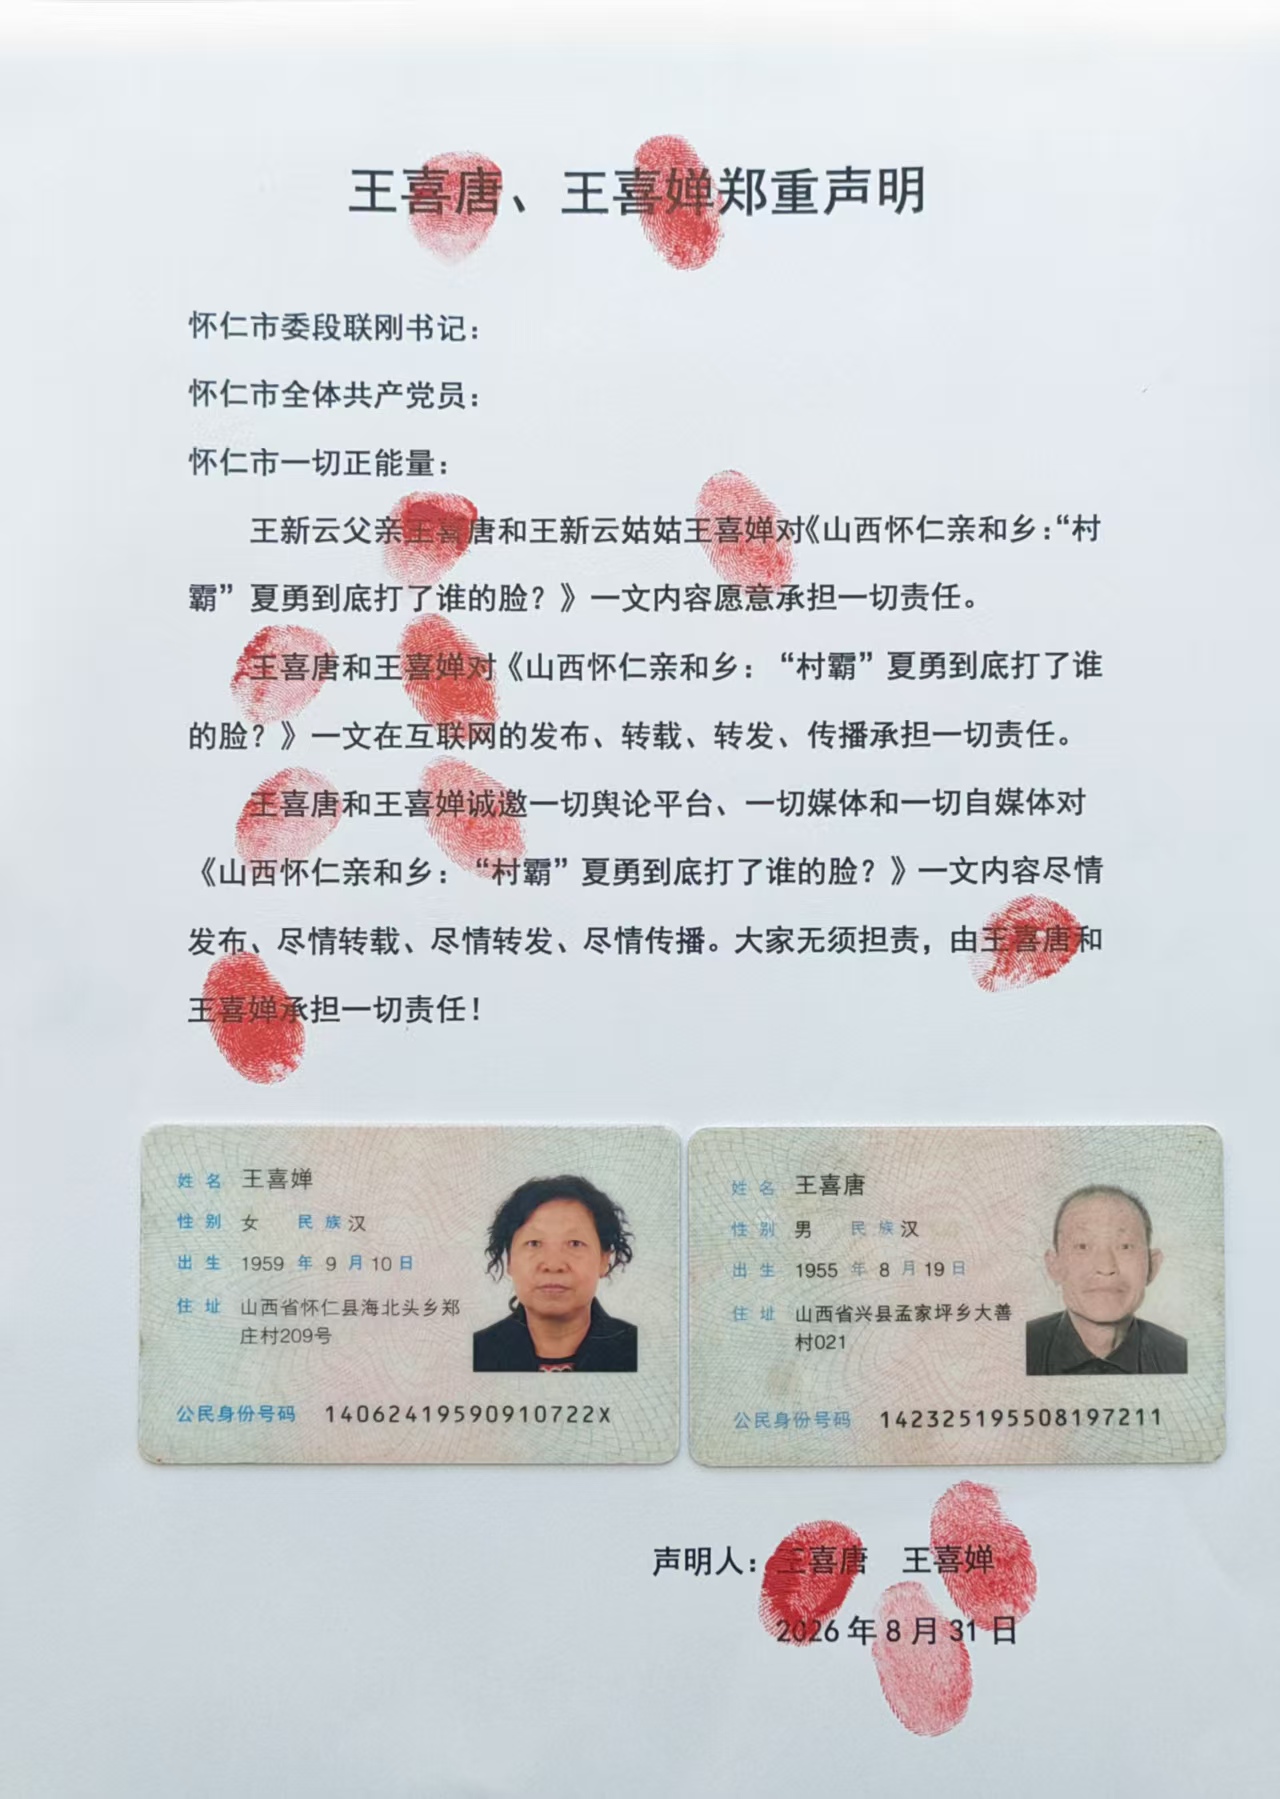 王喜唐、王喜婵郑重声明
怀仁市委段联刚书记：
怀仁市全体共产党员：
怀仁市一切正能量：
王新云父亲王喜唐和王新云姑姑王喜婵对《山西怀仁亲和乡：“村
霸”夏勇到底打了谁的脸？》一文内容愿意承担一切责任。
王喜唐和王喜婵对《山西怀仁亲和乡：“村霸”夏勇到底打了谁
的脸？》一文在互联网的发布、转载、转发、传播承担一切责任。
王喜唐和王喜婵诚邀一切舆论平台、一切媒体和一切自媒体对
《山西怀仁亲和乡：“村霸”夏勇到底打了谁的脸？》一文内容尽情
发布、尽情转载、尽情转发、尽情传播。大家无须担责，由王喜唐和
王喜婵承担一切责任！
姓名 王喜婵
性别 女 民族 汉
出生 1959 年 9 月 10 日
住址 山西省怀仁县海北头乡郑
庄村209号
公民身份号码 14062419590910722X
姓名 王喜唐
性别 男 民族 汉
出生 1955 年 8 月 19 日
住址 山西省兴县孟家坪乡大善
村021
公民身份号码 142325195508197211
声明人：王喜唐 王喜婵
2026 年 8 月 31 日